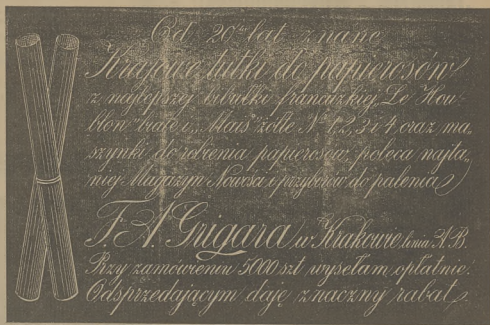 Od 20tu lat znane
Krajowe tutki do papierosów
z najlepszej bibułki francuzkiej „Le Hou-
blon” białe i „Maïs” żółte Nr 1, 2, 3 i 4 oraz ma-
szynki do robienia papierosów, poleca najta-
niej Magazyn Nowości i przyborów do palenia
F. A. Grigara w Krakowie linia A-B.
Przy zamówieniu 5000 szt wysełam opłatnie.
Odsprzedającym daję znaczny rabat.